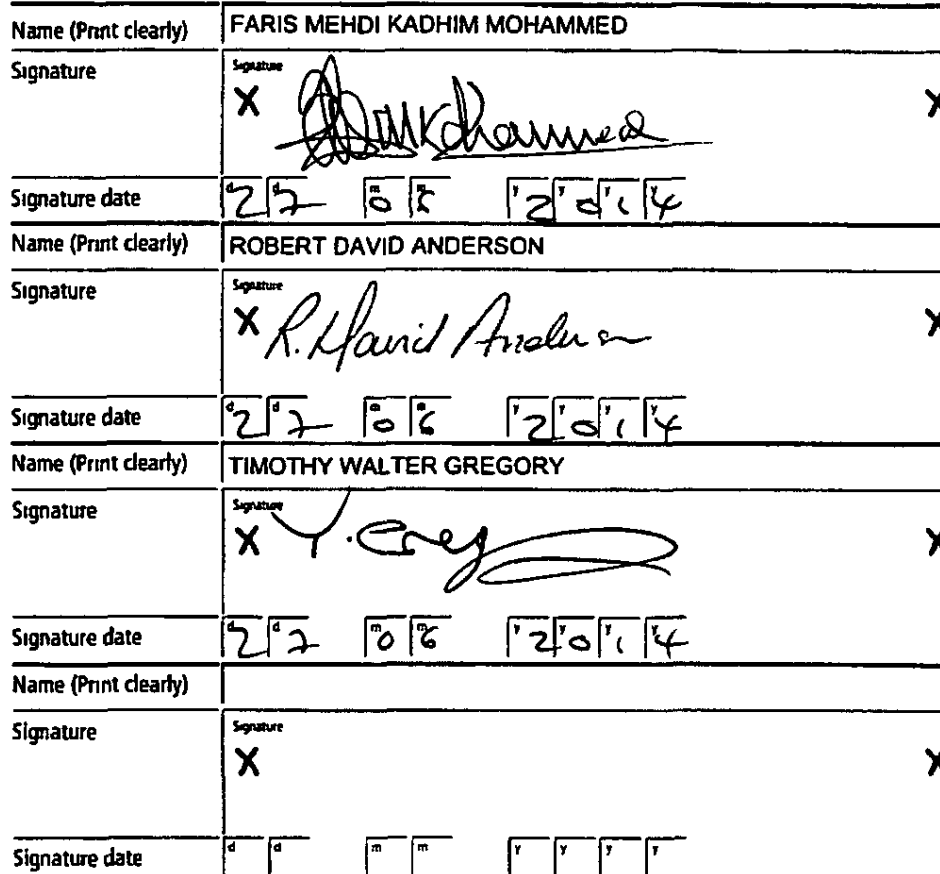 Name (Print clearly) FARIS MEHDI KADHIM MOHAMMED
Signature Signature
X X
Signature date d2 d7 m0 m6 y2 y0 y1 y4
Name (Print clearly) ROBERT DAVID ANDERSON
Signature Signature
X R. David Anderson X
Signature date d2 d7 m0 m6 y2 y0 y1 y4
Name (Print clearly) TIMOTHY WALTER GREGORY
Signature Signature
X X
Signature date d2 d7 m0 m6 y2 y0 y1 y4
Name (Print clearly)
Signature Signature
X X
Signature date d d m m y y y y